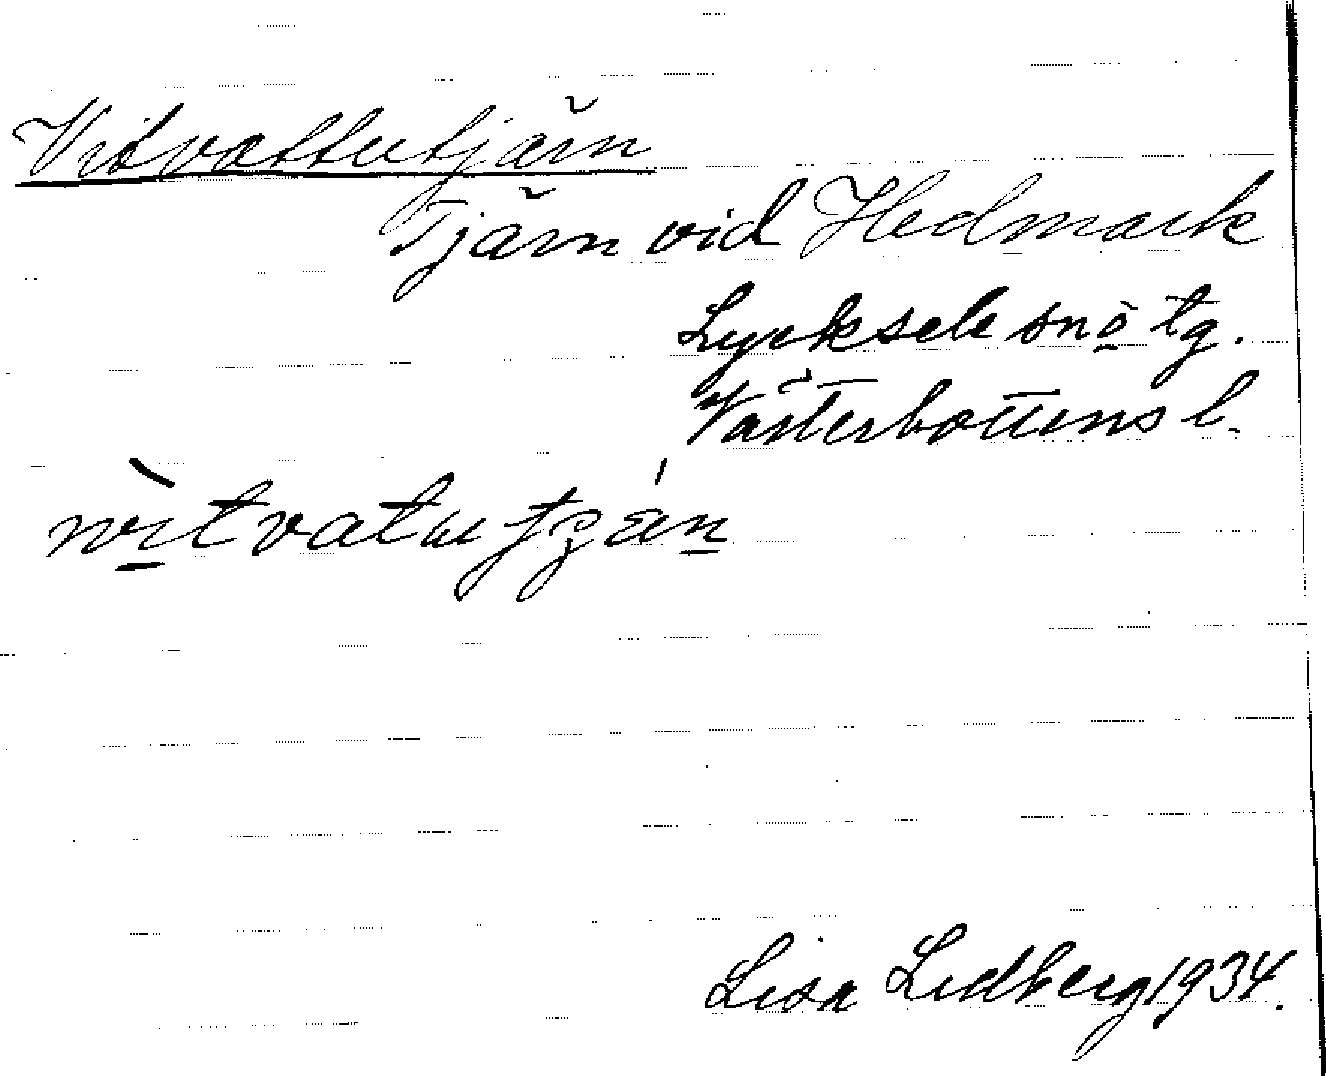 Vitvattutjärn
Tjärn vid Hedmark
Lycksele snö tg.
Västerbottens l.
Lisa Lidberg 1934.